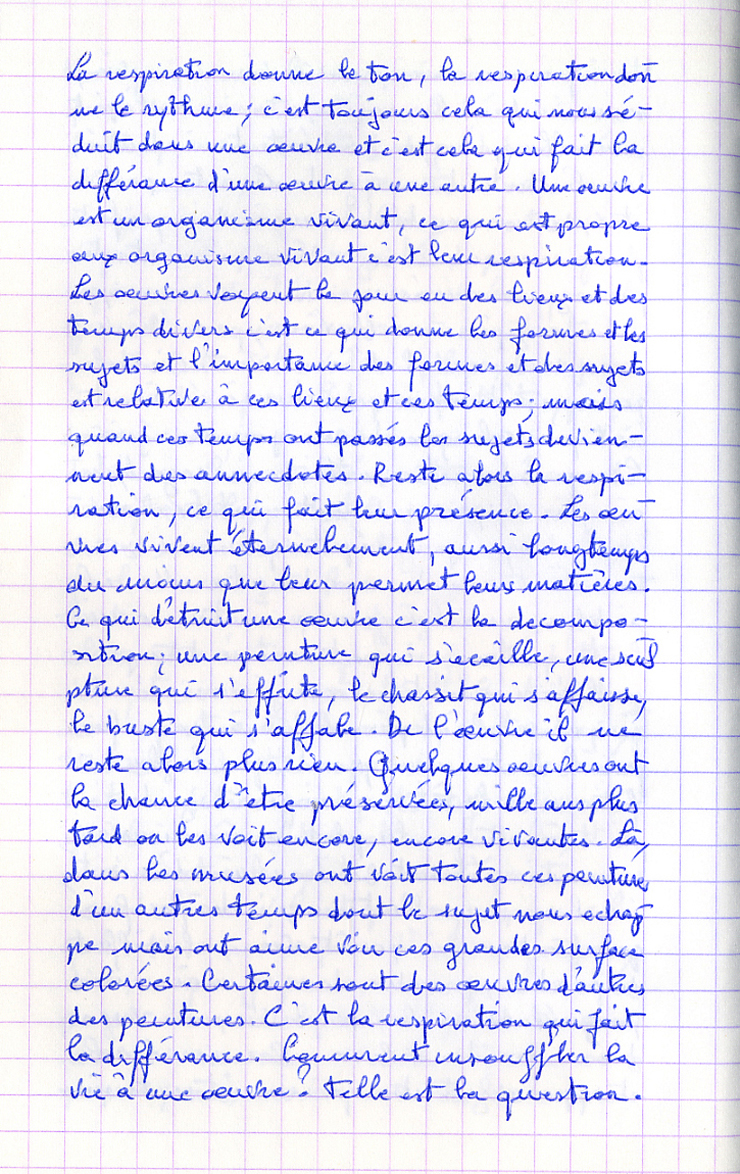 La respiration donne le ton, la respiration don
ne le rythme; c'est toujours cela qui nous sé-
duit dans une œuvre et c'est cela qui fait la
différance d'une œuvre à une autre. Une œuvre
est un organisme vivant, ce qui est propre
aux organisme vivant c'est leur respiration.
Les œuvres voyent le jour en des lieux et des
temps divers c'est ce qui donne les formes et les
sujets et l'importance des formes et des sujets
est relative à ces lieux et ces temps; mais
quand ces temps ont passés les sujets devien-
nent des annecdotes. Reste alors la respi-
ration, ce qui fait leur présence. Les œu
vres vivent éternellement, aussi longtemps
du moins que leur permet leurs matières.
Ce qui détruit une œuvre c'est la decompo-
sition; une peinture qui s'écaille, une scul
pture qui s'effrite, le chassit qui s'affaisse,
le buste qui s'affale. De l'œuvre il ne
reste alors plus rien. Quelques œuvres ont
la chance d'être préservées, mille ans plus
tard on les voit encore, encore vivantes. Là,
dans les musées ont voit toutes ces peinture
d'un autres temps dont le sujet nous echap
pe mais ont aime voir ces grandes surface
colorées. Certaines sont des œuvres d'autres
des peintures. C'est la respiration qui fait
la différance. Comment insouffler la
vie à une œuvre? Telle est la question.